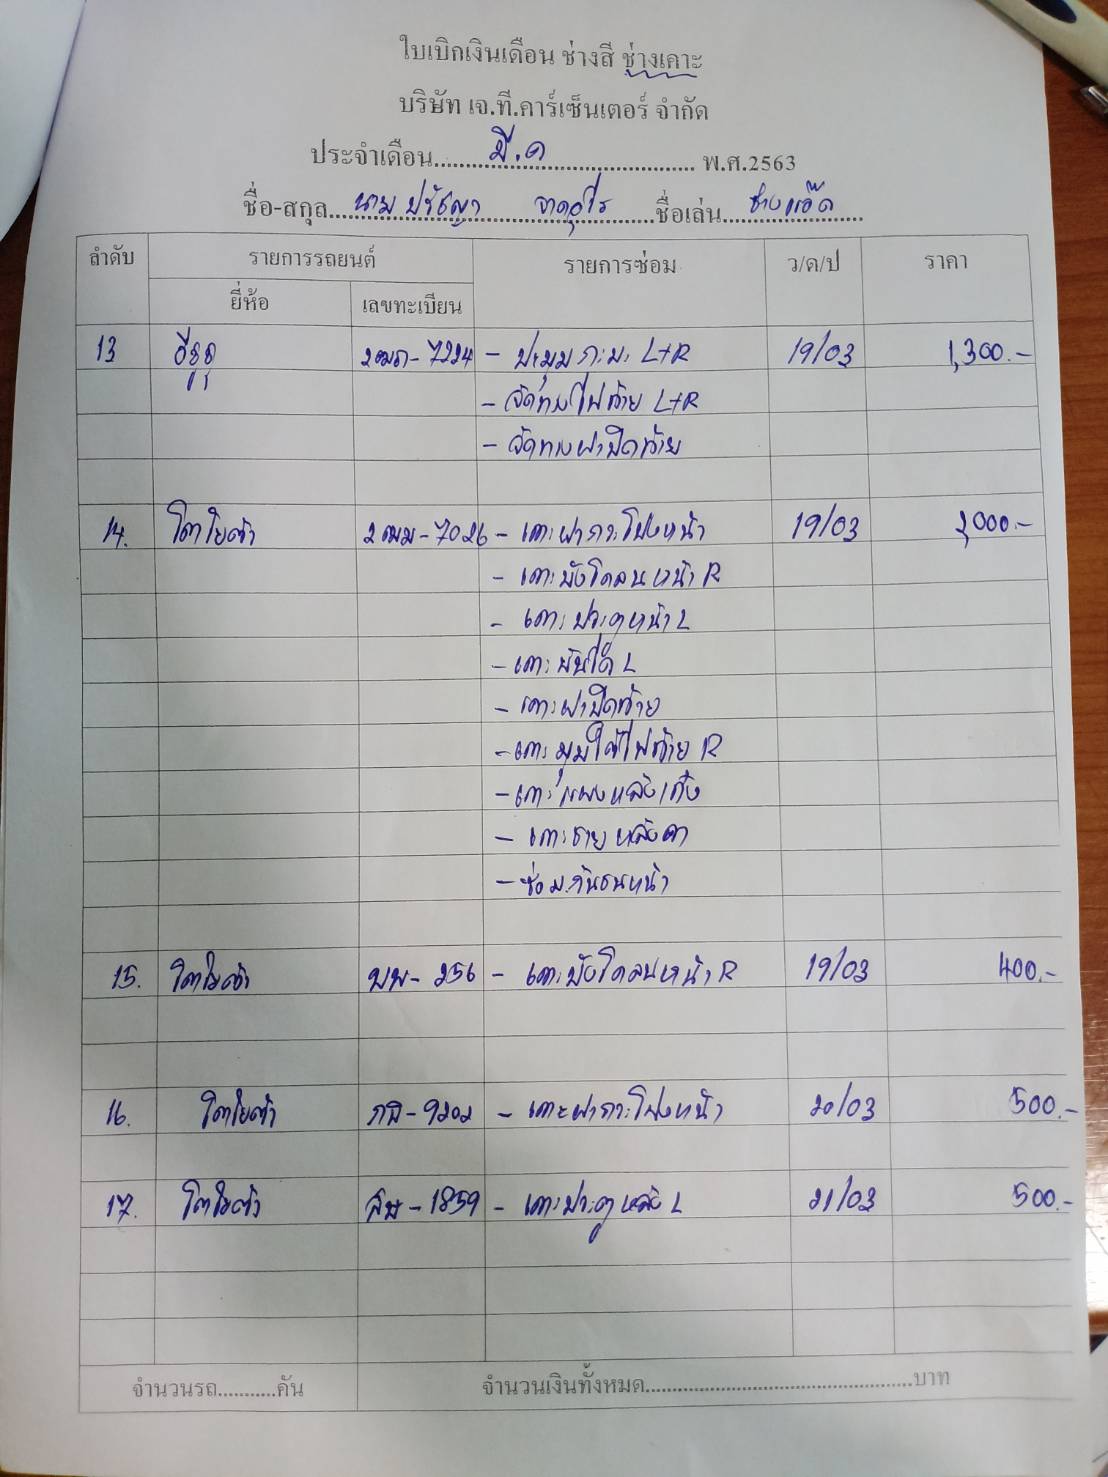 ใบเบิกเงินเดือน ช่างสี ช่างเคาะ
บริษัท เจ.ที.คาร์เซ็นเตอร์ จำกัด
ประจำเดือน......มี.ค......พ.ศ.2563
ชื่อ-สกุล...นาย ปรัชญา จาดอุไร...ชื่อเล่น...ช่างแอ๊ด...
ลำดับ รายการรถยนต์ รายการซ่อม ว/ด/ป ราคา
ยี่ห้อ เลขทะเบียน
13 อีซูซุ 7224 - ปะมุมกะบะ L+R 19/03 1,300.-
- จัดทรงไฟท้าย L+R
- จัดทรงฝาปิดท้าย
14. โตโยต้า 2ฒม-7026 - เคาะฝากระโปรงหน้า 19/03 2,000.-
- เคาะบังโคลนหน้า R
- เคาะประตูหน้า L
- เคาะบันได L
- เคาะฝาปิดท้าย
- เคาะมุมใต้ไฟท้าย R
- เคาะแผงหลังเก๋ง
- เคาะชายหลังคา
- ซ่อมกันชนหน้า
15. โตโยต้า 256 - เคาะบังโคลนหน้า R 19/03 400.-
16. โตโยต้า 9202 - เคาะฝากระโปรงหน้า 20/03 500.-
17. โตโยต้า 1859 - เคาะประตูหลัง L 21/03 500.-
จำนวนรถ...........คัน จำนวนเงินทั้งหมด..................................................บาท